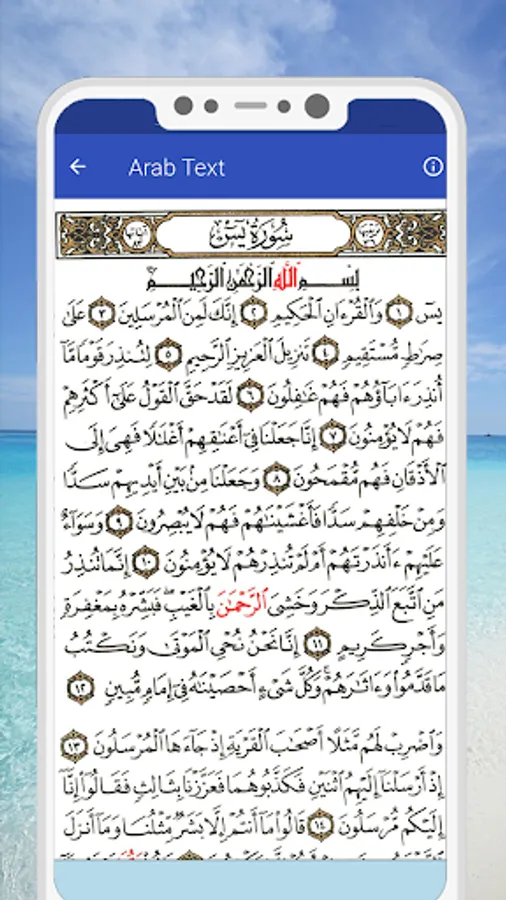 Arab Text
سُورَةُ يسٓ
بِسْمِ ٱللَّهِ ٱلرَّحْمَٰنِ ٱلرَّحِيمِ
يسٓ ١ وَٱلْقُرْءَانِ ٱلْحَكِيمِ ٢ إِنَّكَ لَمِنَ ٱلْمُرْسَلِينَ ٣ عَلَىٰ
صِرَٰطٍ مُّسْتَقِيمٍ ٤ تَنزِيلَ ٱلْعَزِيزِ ٱلرَّحِيمِ ٥ لِتُنذِرَ قَوْمًا مَّآ
أُنذِرَ ءَابَآؤُهُمْ فَهُمْ غَٰفِلُونَ ٦ لَقَدْ حَقَّ ٱلْقَوْلُ عَلَىٰٓ أَكْثَرِهِمْ
فَهُمْ لَا يُؤْمِنُونَ ٧ إِنَّا جَعَلْنَا فِىٓ أَعْنَٰقِهِمْ أَغْلَٰلًا فَهِىَ إِلَى
ٱلْأَذْقَانِ فَهُم مُّقْمَحُونَ ٨ وَجَعَلْنَا مِنۢ بَيْنِ أَيْدِيهِمْ سَدًّا
وَمِنْ خَلْفِهِمْ سَدًّا فَأَغْشَيْنَٰهُمْ فَهُمْ لَا يُبْصِرُونَ ٩ وَسَوَآءٌ
عَلَيْهِمْ ءَأَنذَرْتَهُمْ أَمْ لَمْ تُنذِرْهُمْ لَا يُؤْمِنُونَ ١٠ إِنَّمَا تُنذِرُ
مَنِ ٱتَّبَعَ ٱلذِّكْرَ وَخَشِىَ ٱلرَّحْمَٰنَ بِٱلْغَيْبِ ۖ فَبَشِّرْهُ بِمَغْفِرَةٍ
وَأَجْرٍ كَرِيمٍ ١١ إِنَّا نَحْنُ نُحْىِ ٱلْمَوْتَىٰ وَنَكْتُبُ
مَا قَدَّمُوا۟ وَءَاثَٰرَهُمْ ۚ وَكُلَّ شَىْءٍ أَحْصَيْنَٰهُ فِىٓ إِمَامٍ مُّبِينٍ ١٢
وَٱضْرِبْ لَهُم مَّثَلًا أَصْحَٰبَ ٱلْقَرْيَةِ إِذْ جَآءَهَا ٱلْمُرْسَلُونَ ١٣
إِذْ أَرْسَلْنَآ إِلَيْهِمُ ٱثْنَيْنِ فَكَذَّبُوهُمَا فَعَزَّزْنَا بِثَالِثٍ فَقَالُوٓا۟ إِنَّآ
إِلَيْكُم مُّرْسَلُونَ ١٤ قَالُوا۟ مَآ أَنتُمْ إِلَّا بَشَرٌ مِّثْلُنَا وَمَآ أَنزَلَ